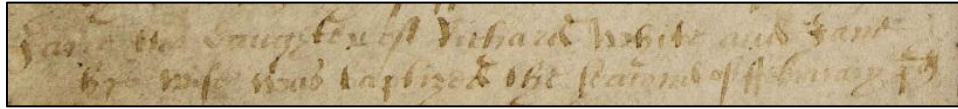 Jane the Daughter of Richard White and Jane
his wife was baptized the second of ffebruary